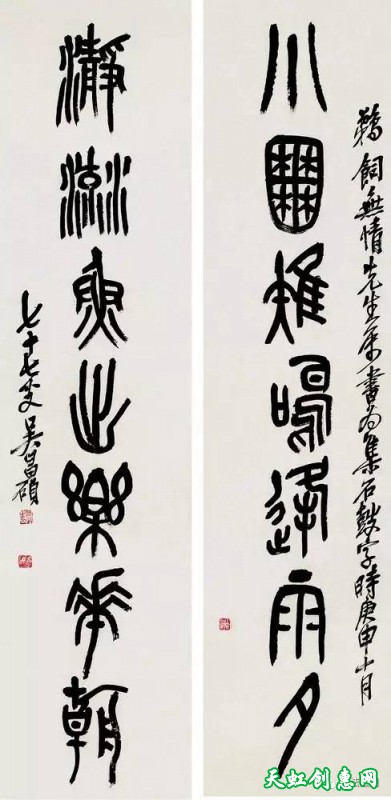 鵜飼無情先生属書為集石鼓字時庚申十月
小囿雉鳴逢雨夕
瀞淵魚出樂華朝
七十七叟吳昌碩
天虹创惠网